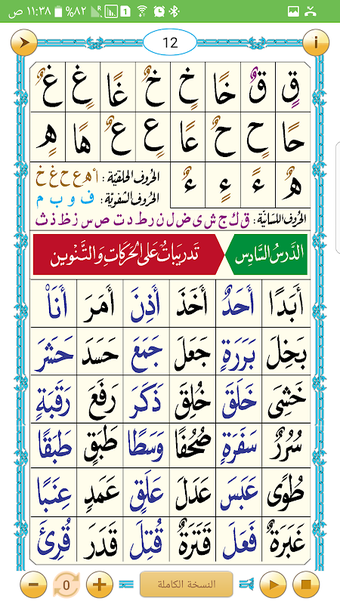 ١١:٣٨ ص ٨٢%
12
قٍ قٌ خًا خٍ خٌ غًا غٍ غٌ
حًا حٍ حٌ عًا عٍ عٌ هًا هٍ
هٌ ءً ءٍ ءٌ
الحروف الحلقيّة : أ هـ ع ح غ خ
الحروف الشفوية : ف و ب م
الحروف اللسانيّة : ق ك ج ش ي ض ل ن ر ط د ت ص س ز ظ ذ ث
الدَّرسُ السَّادِس
تَدريباتٌ عَلى الحَرَكاتِ وَالتَّنْوين
أَبَدًا أَحَدٌ أَخَذَ أَذِنَ أَمَرَ أَنَا۠
بَخِلَ بَرَرَةٍ جَعَلَ جَمَعَ حَسَدَ حَشَرَ
خَشِيَ خَلَقَ خُلِقَ ذَكَرَ رَفَعَ رَقَبَةٍ
سُرُرٌ سَفَرَةٍ صُحُفًا وَسَطًا طَبَقٍ طَبَقًا
طُوًى عَبَسَ عَدَلَ عَلَقٍ عَمَدٍ عِنَبًا
غَبَرَةٌ فَعَلَ قَتَرَةٌ قُتِلَ قَدَرَ قُرِئَ
0
النسخة الكاملة